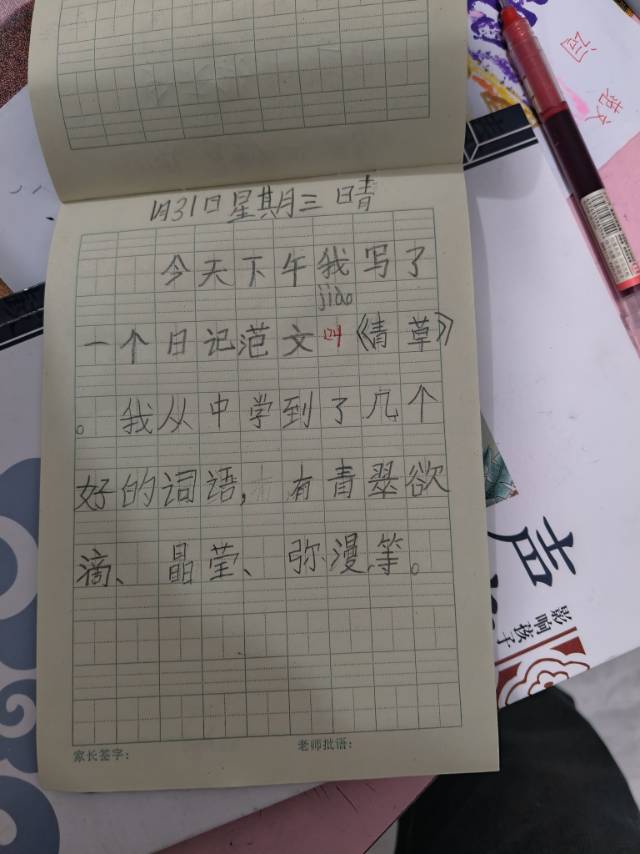 1月31日星期三 晴
今天下午我写了
jiào
一个日记范文叫《青草》
。我从中学到了几个
好的词语,有青翠欲
滴、晶莹、弥漫等。
家长签字: 老师批语:
范文
词
声
影响孩子